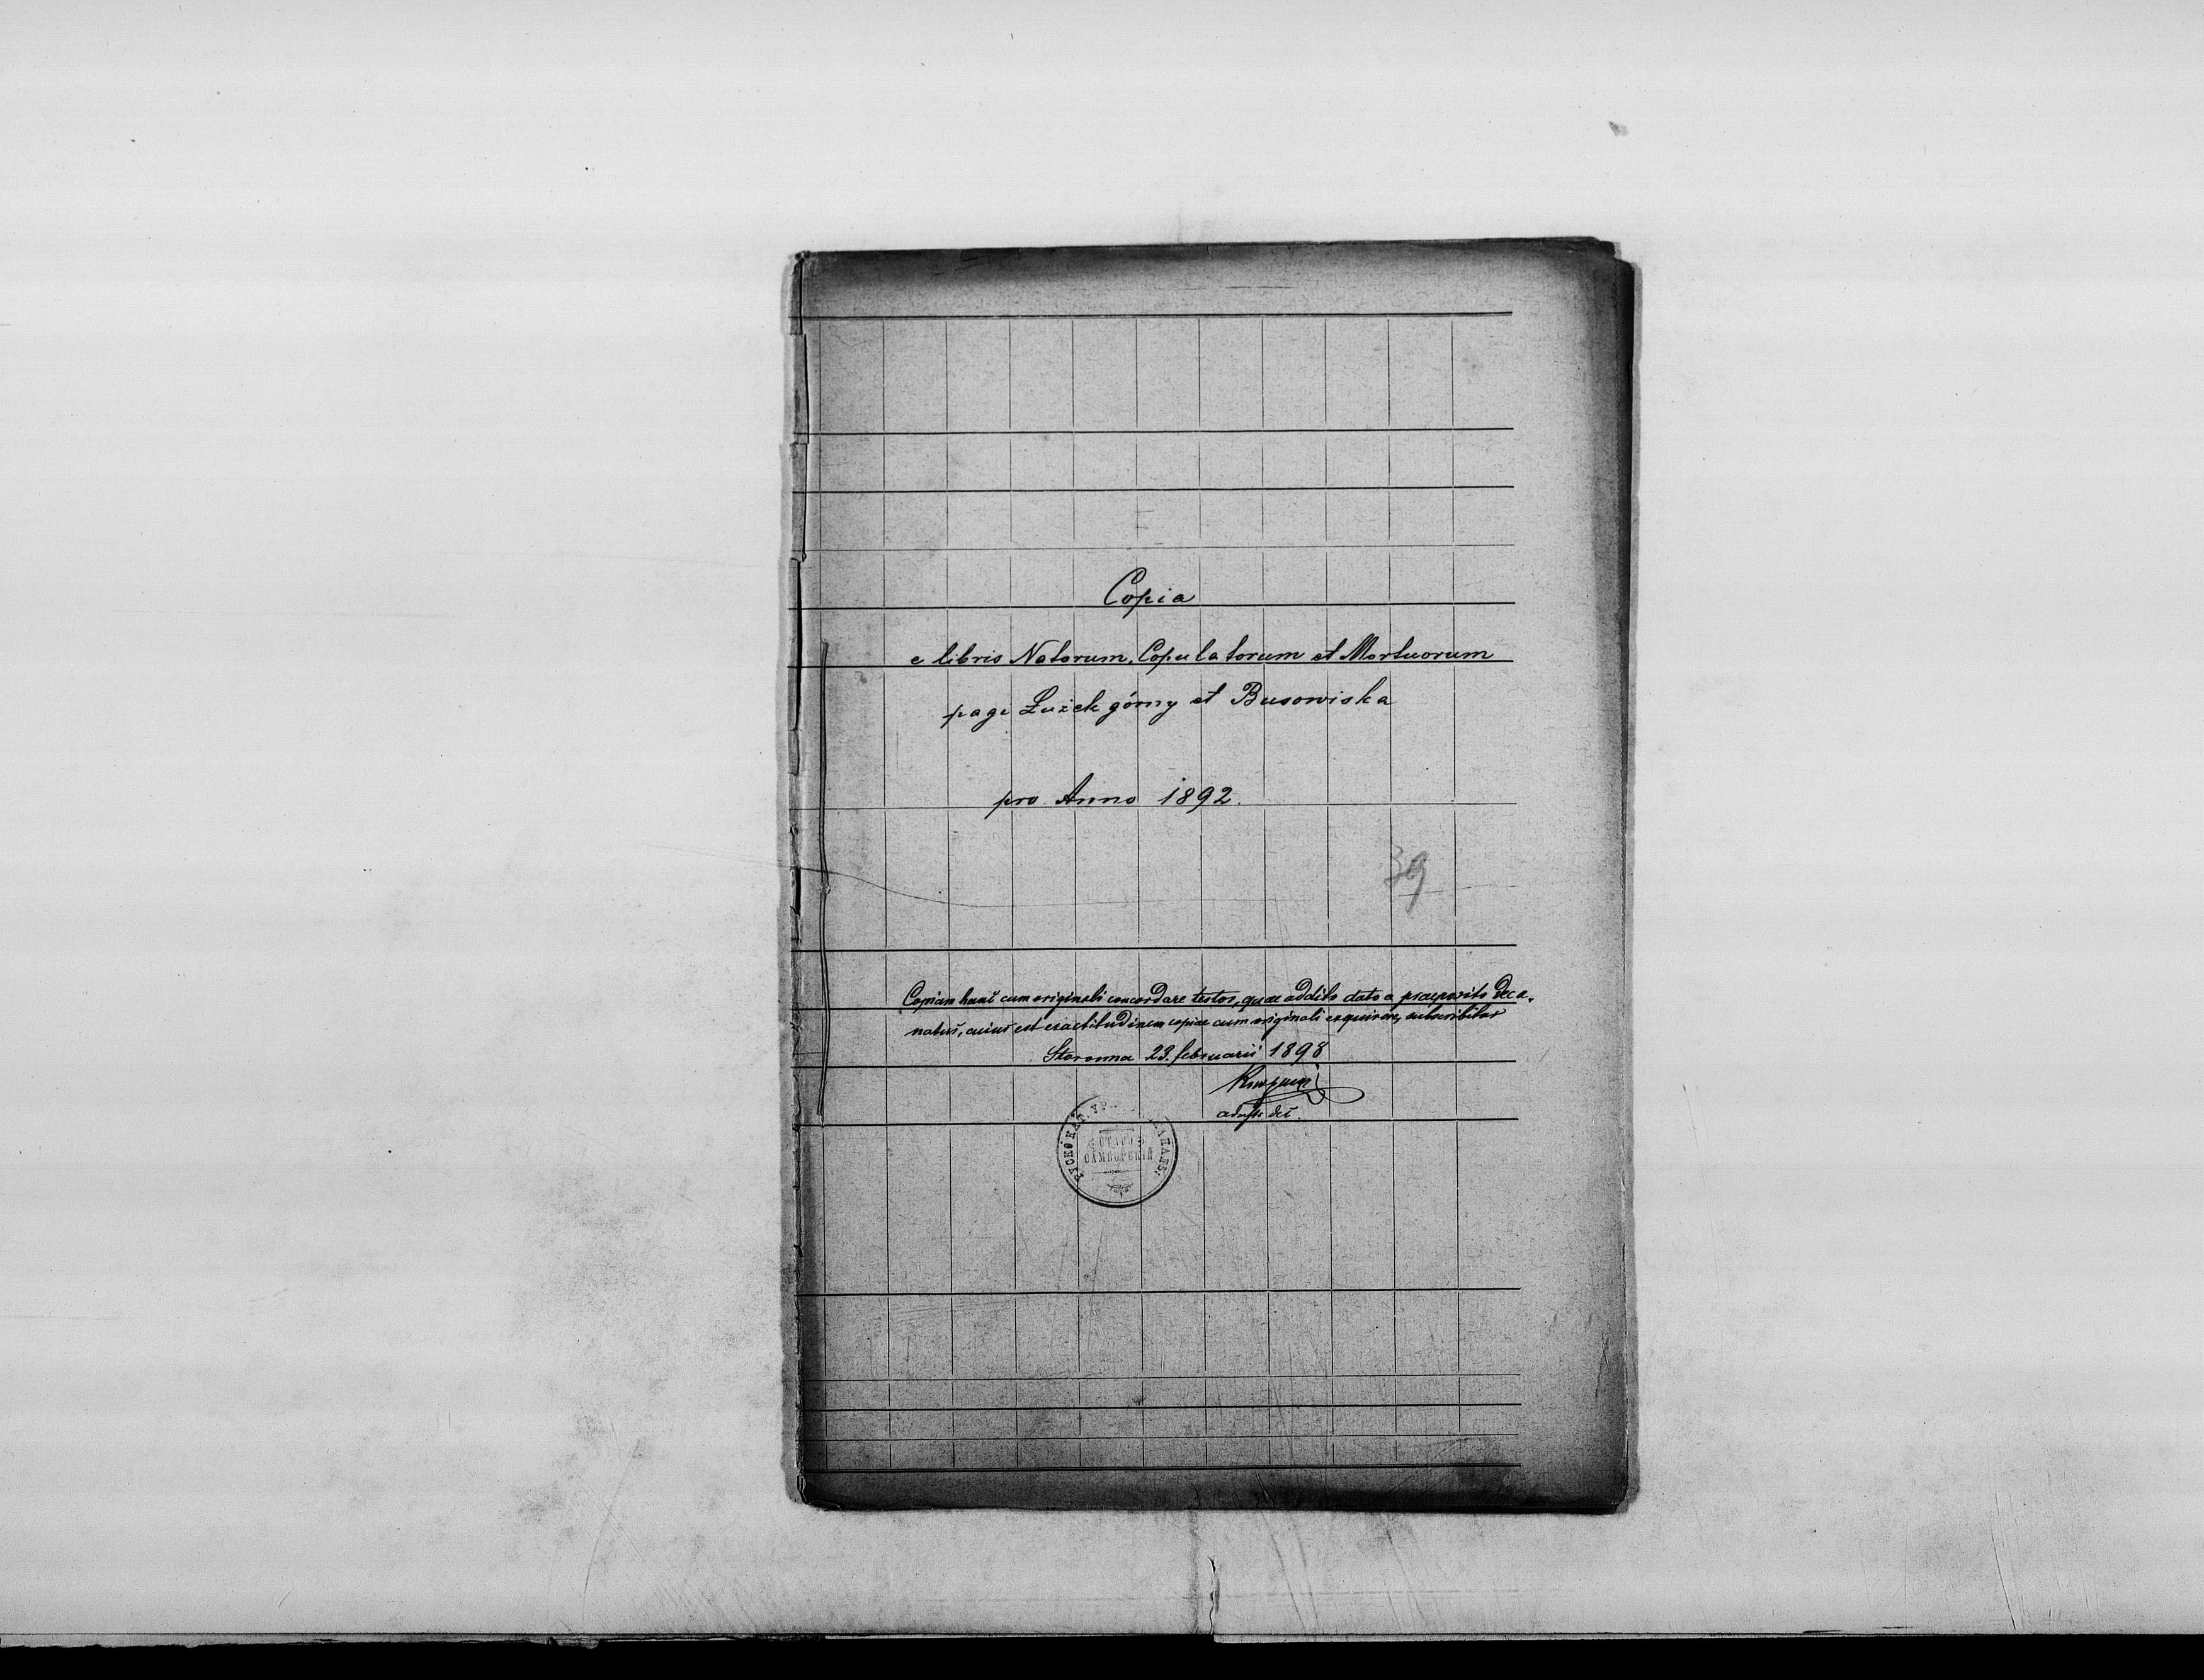 Copia
e libris Natorum, Copulatorum et Mortuorum
pagi Łużek górny et Busowiska
pro Anno 1892.
39
Copiam hanc cum originali concordare testor, quae addito dato a praeposito deca-
natus, cuius est exactitudinem copiae cum originali exquirere, subscribitur
Staromia 23. februarii 1898
СТАРО-
САМБОРСКІЙ